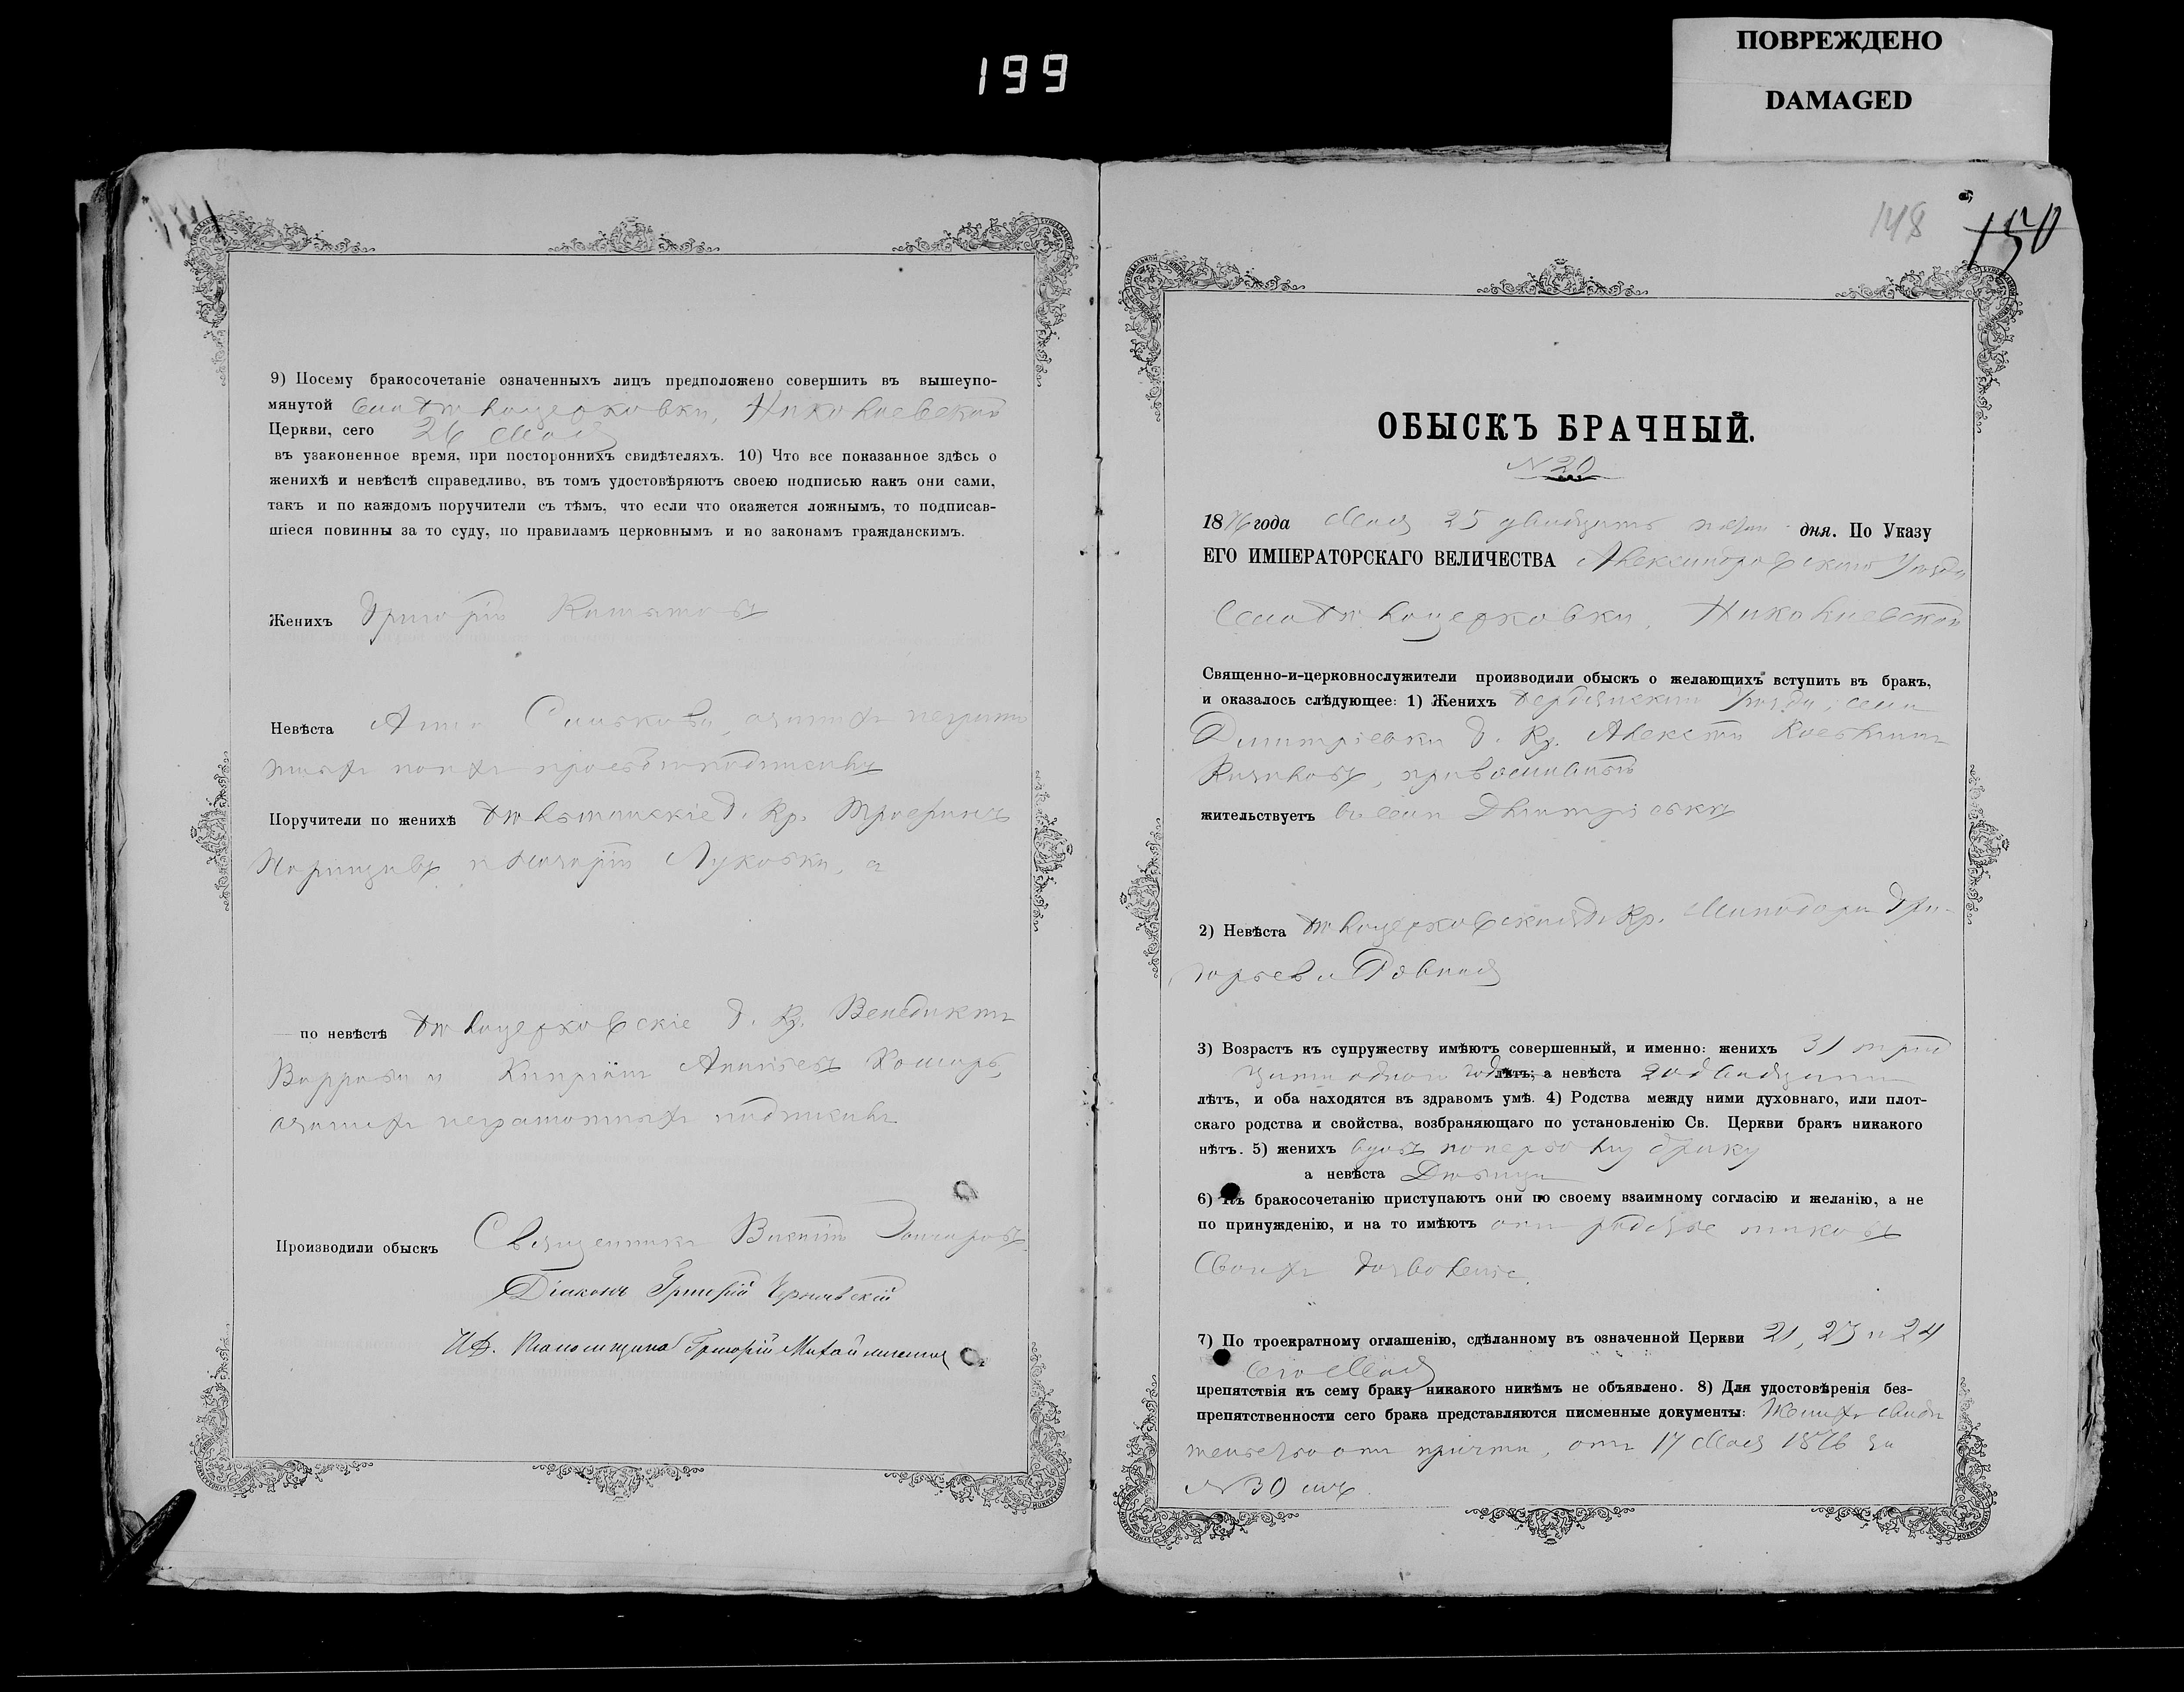 199
ПОВРЕЖДЕНО
DAMAGED
9) Посему бракосочетаніе означенныхъ лицъ предположено совершить въ вышеупо-
мянутой села Бѣлоцерковки, Николаевской
Церкви, сего 26 Мая
въ узаконенное время, при постороннихъ свидѣтеляхъ. 10) Что все показанное здѣсь о
женихѣ и невѣстѣ справедливо, въ томъ удостовѣряютъ своею подписью какъ они сами,
такъ и по каждомъ поручители съ тѣмъ, что если что окажется ложнымъ, то подписав-
шіеся повинны за то суду, по правиламъ церковнымъ и по законамъ гражданскимъ.
Женихъ Григорій
Невѣста Анна
Поручители по женихѣ г. Кр. Трофимъ
и
по невѣстѣ Бѣлоцерковскіе г. Кр. Венедиктъ
и Кипріанъ
неграмотныхъ
Производили обыскъ Священникъ
Діаконъ Григорій Чернявскій
И.Д. Григорій
148
150
ОБЫСКЪ БРАЧНЫЙ.
N 20
1876 года Мая 25 двадцать пятаго дня. По Указу
ЕГО ИМПЕРАТОРСКАГО ВЕЛИЧЕСТВА Александровскаго Уѣзда
Села Бѣлоцерковки, Николаевской
Священно-и-церковнослужители производили обыскъ о желающихъ вступить въ бракъ,
и оказалось слѣдующее: 1) Женихъ Бердянскаго Уѣзда, села
Димитріевки г. Кр. Алексѣй
православный
жительствуетъ въ селѣ
2) Невѣста Бѣлоцерковская г. Кр. Гри-
горьева
3) Возрастъ къ супружеству имѣютъ совершенный, и именно: женихъ 31 трид
цати одного года лѣтъ, а невѣста 20 двадцати
лѣтъ, и оба находятся въ здравомъ умѣ. 4) Родства между ними духовнаго, или плот-
скаго родства и свойства, возбраняющаго по установленію Св. Церкви бракъ никакого
нѣтъ. 5) женихъ вдовъ по первому браку
а невѣста Дѣвица
6) Къ бракосочетанію приступаютъ они по своему взаимному согласію и желанію, а не
по принужденію, и на то имѣютъ отъ
своихъ дозволеніе.
7) По троекратному оглашенію, сдѣланному въ означенной Церкви 21, 23 и 24
сего Мая
препятствія къ сему браку никакого никѣмъ не объявлено. 8) Для удостовѣренія без-
препятственности сего брака представляются писменные документы: Женихъ свидѣ
тельство отъ причта, отъ 17 Мая 1876 за
N 30